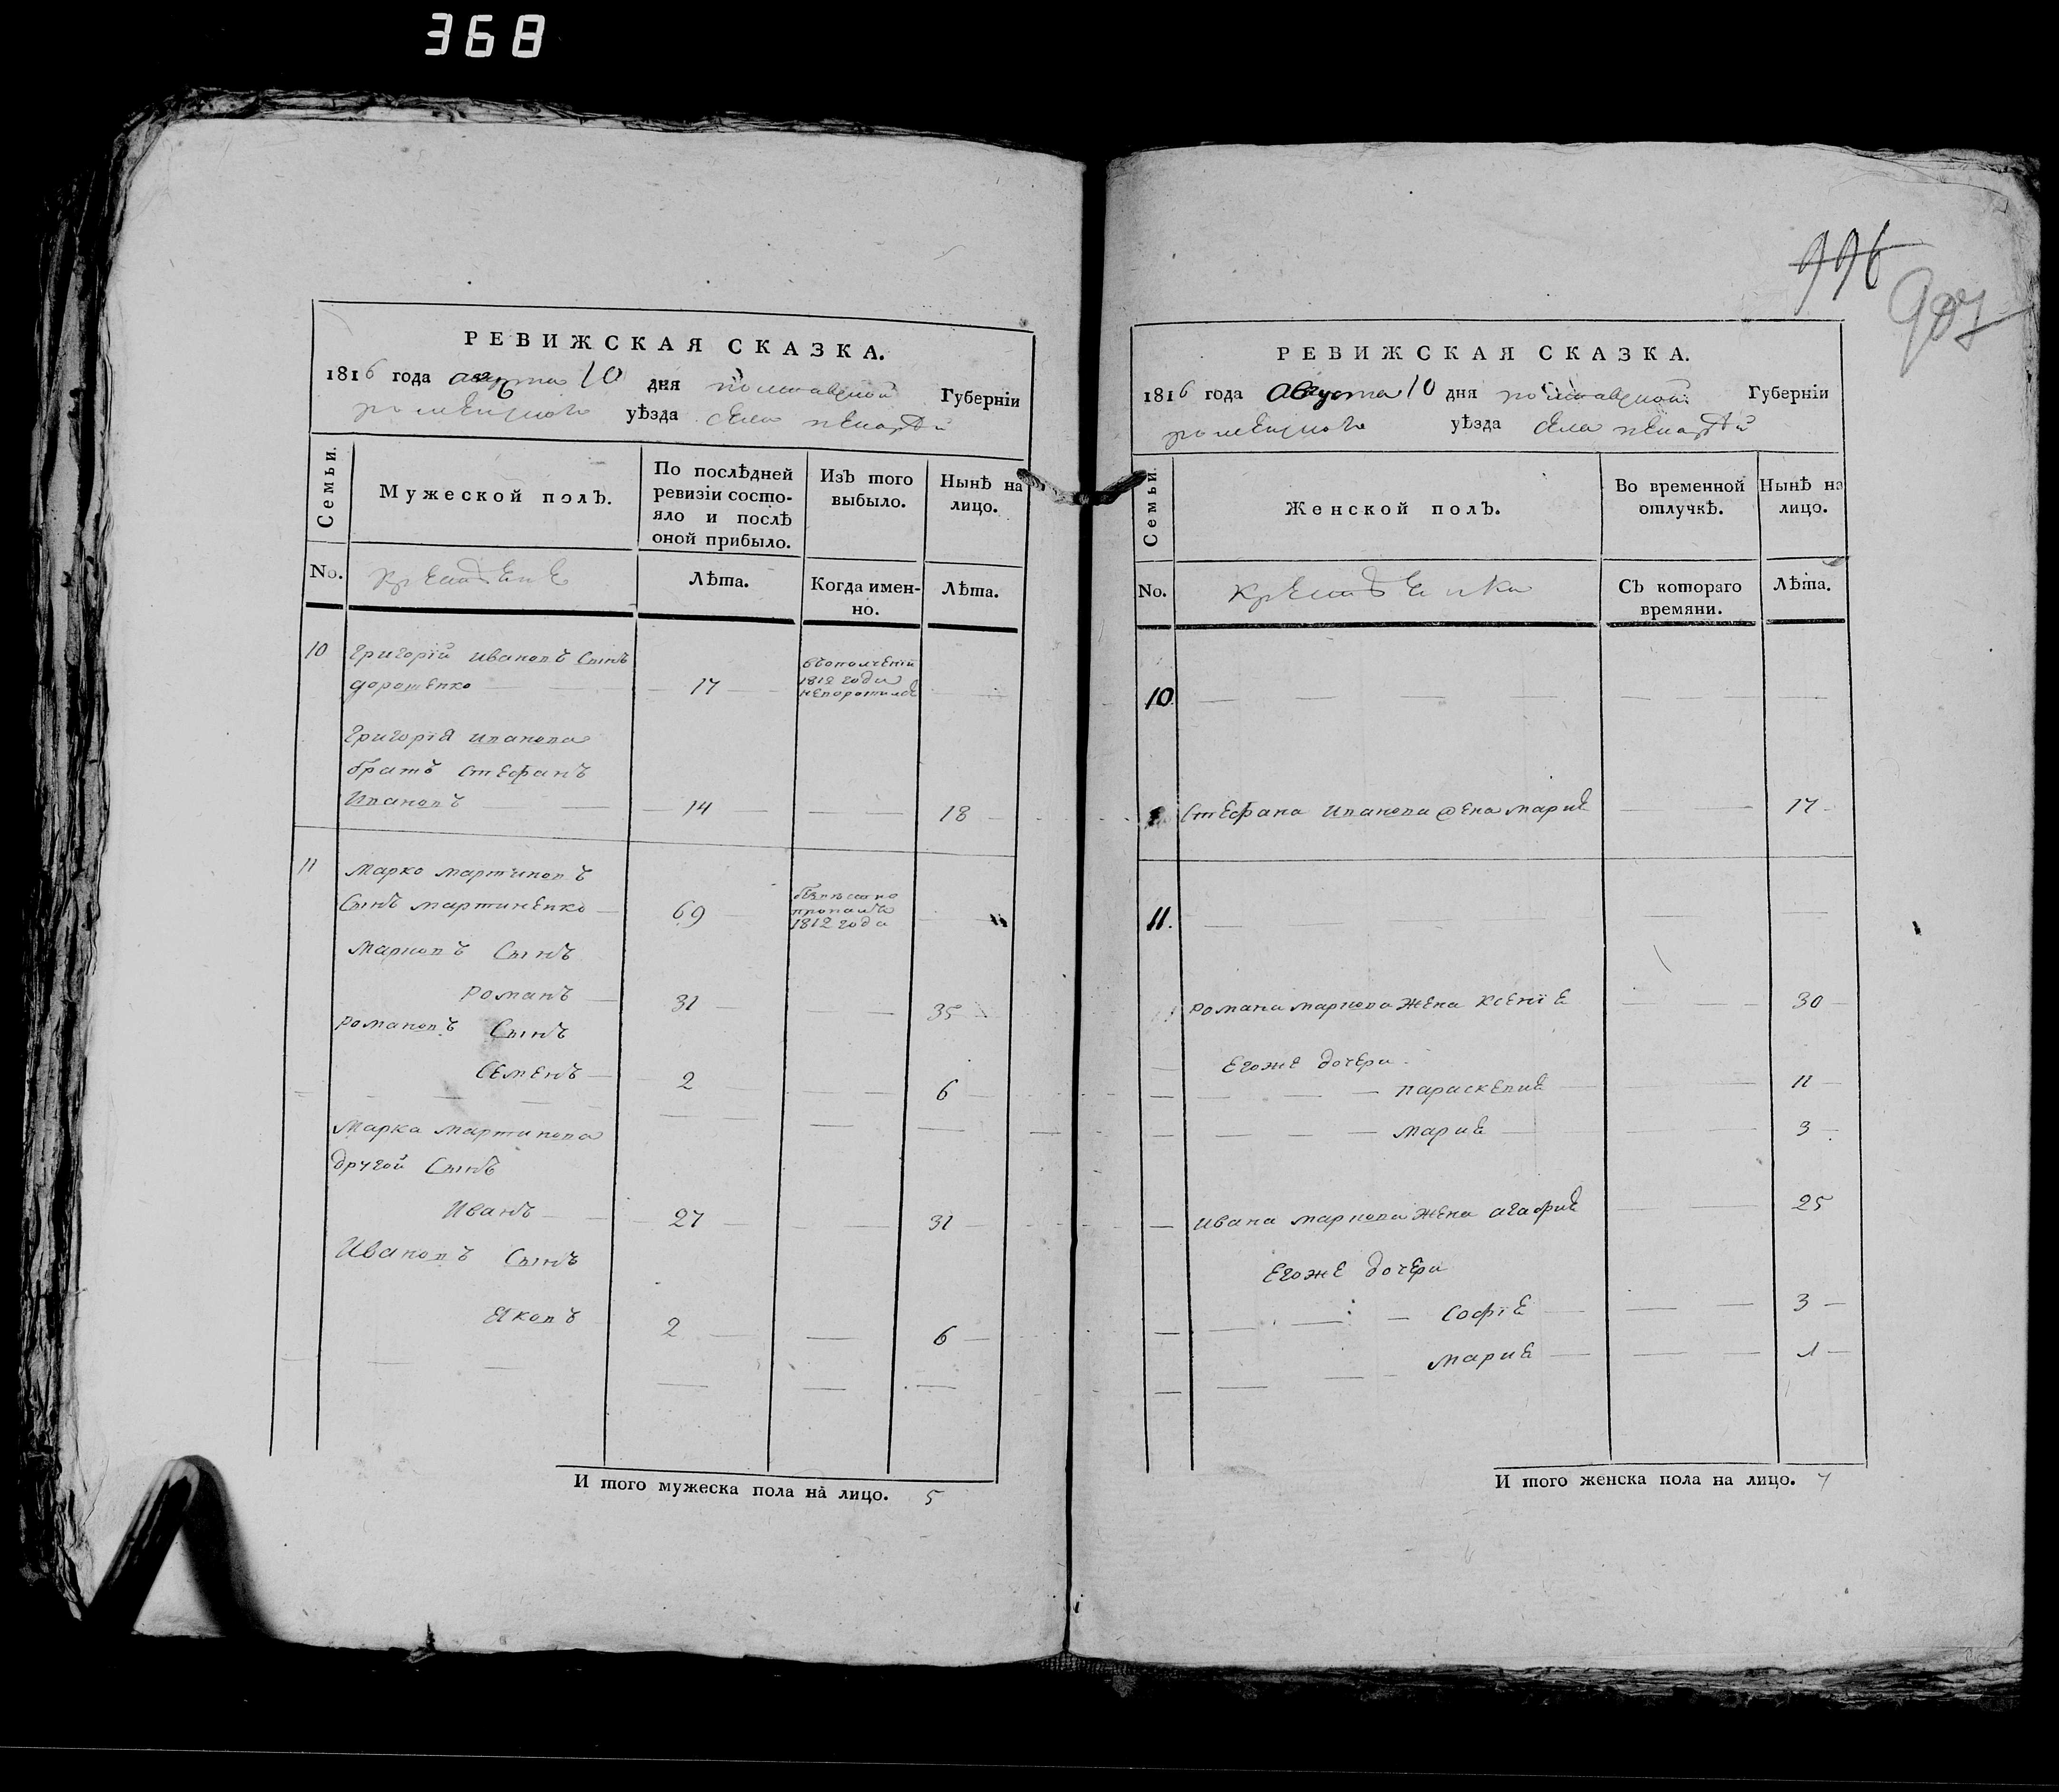 368
РЕВИЖСКАЯ СКАЗКА.
1816 года августа 10 дня полтавской Губерніи
роменского уѣзда села
Семьи.
Мужеской полъ.
По послѣдней ревизіи состо-
яло и послѣ
оной прибыло.
Изъ того
выбыло.
Нынѣ на
лицо.
No.
Лѣта.
Когда имен-
но.
Лѣта.
10 Григорїй Ивановъ Сынъ
дорошенко — 17 — въополченїи
1812 года
Григорїя Иванова
братъ стефанъ
Ивановъ — 14 — 18 —
11 Марко мартиновъ
Сынъ мартиненко — 69 — безвѣстно
пропалъ
1812 года
Марковъ Сынъ
Романъ — 31 — 35
Романовъ Сынъ
Семенъ — 2 — 6 —
Марка мартинова
другой Сынъ
Иванъ — 27 — 31 —
Ивановъ Сынъ
Яковъ 2 — 6 —
И того мужеска пола на лицо. 5
996
907
РЕВИЖСКАЯ СКАЗКА.
1816 года Августа 10 дня полтавской Губерніи
роменского уѣзда села
Семьи.
Женской полъ.
Во временной
отлучкѣ.
Нынѣ на
лицо.
No.
Съ котораго
времяни.
Лѣта.
10
Стефана Иванова жена мария — 17 —
11.
Романа маркова жена ксенїя — 30 —
Егоже дочери
параскевия — 11 —
мария — 3 —
Ивана маркова жена агафия — 25
Егоже дочери
софїя — 3 —
мария — 1 —
И того женска пола на лицо. 7